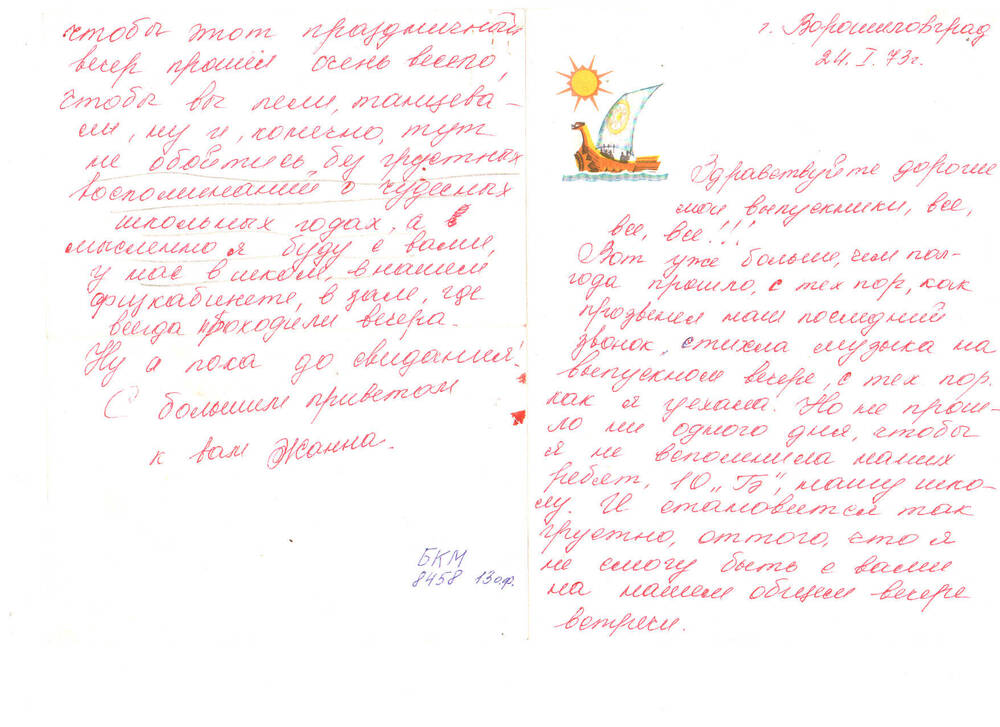 г. Ворошиловград
24. I. 73г.
Здравствуйте дорогие
мои выпускники, все,
все, все!!!
Вот уже больше, чем пол-
года прошло, с тех пор, как
прозвенел наш последний
звонок, стихла музыка на
выпускном вечере, с тех пор.
как я уехала. Но не прош-
ло ни одного дня, чтобы
я не вспомнила наших
ребят, 10 „Б", нашу шко-
лу. И становится так
грустно, оттого, что я
не смогу быть с вами
на нашем общем вечере
встречи.
чтобы этот праздничный
вечер прошёл очень весело,
чтобы вы пели, танцева-
ли, ну и, конечно, тут
не обойтись без грустных
воспоминаний о чудесных
школьных годах, а
мысленно я буду с вами,
у нас в школе, в нашем
физкабинете, в зале, где
всегда проходили вечера.
Ну а пока до свидания!
С большим приветом
к вам Жанна.
БКМ
8458 13о.ф.